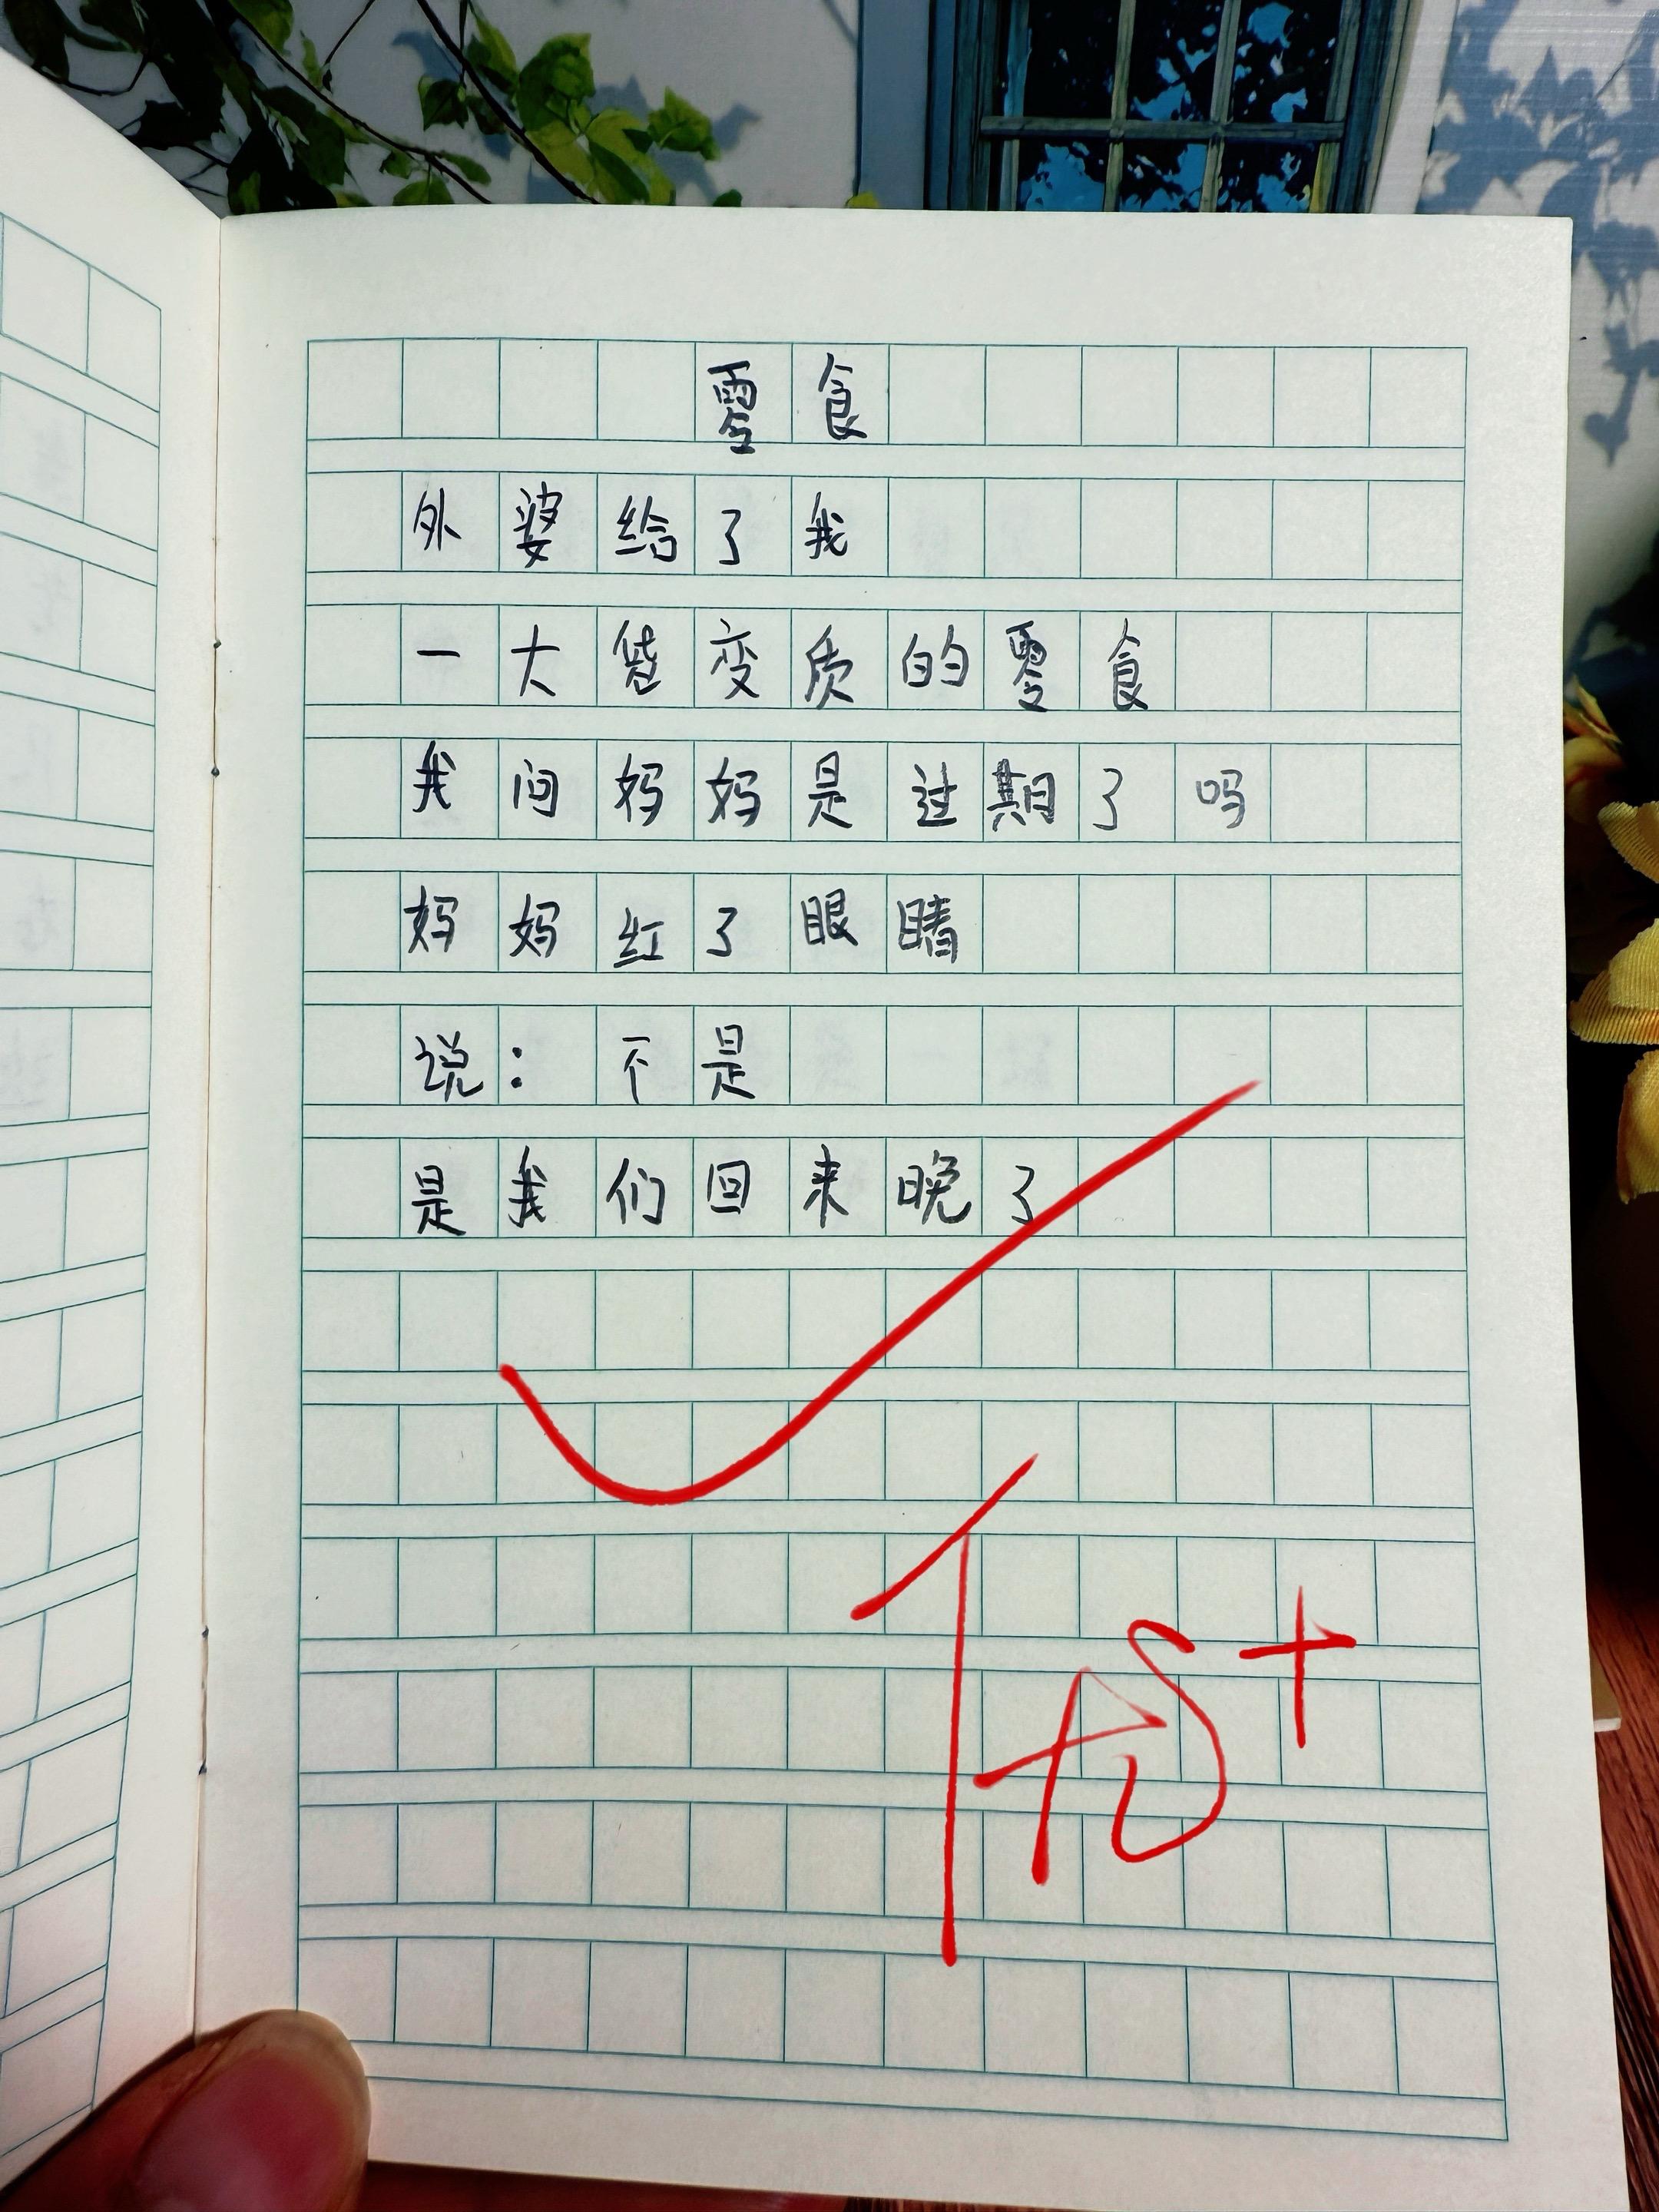 零食
外婆给了我
一大袋变质的零食
我问妈妈是过期了吗
妈妈红了眼睛
说：不是
是我们回来晚了